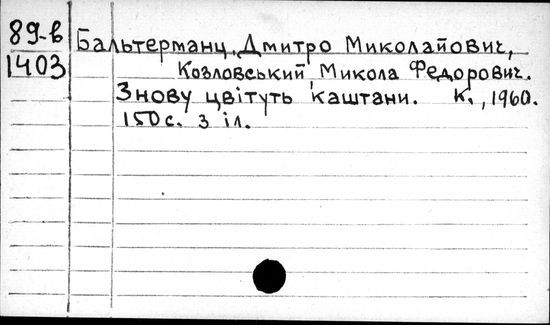 89-в
1403
Бальтерманц, Дмитро Миколайович,
Козловський, Микола Федорович.
Знову цвітуть каштани. К., 1960.
150 с. з іл.